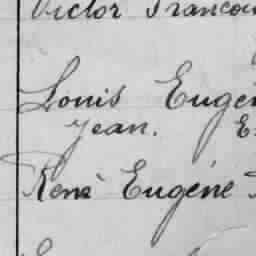 Victor Francois
Louis Eugèn
Jean. E
René Eugène